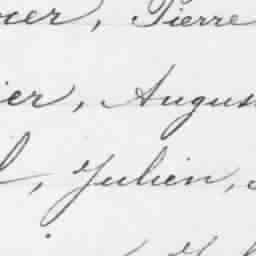 , Pierre
ier, Augus
, Julien,